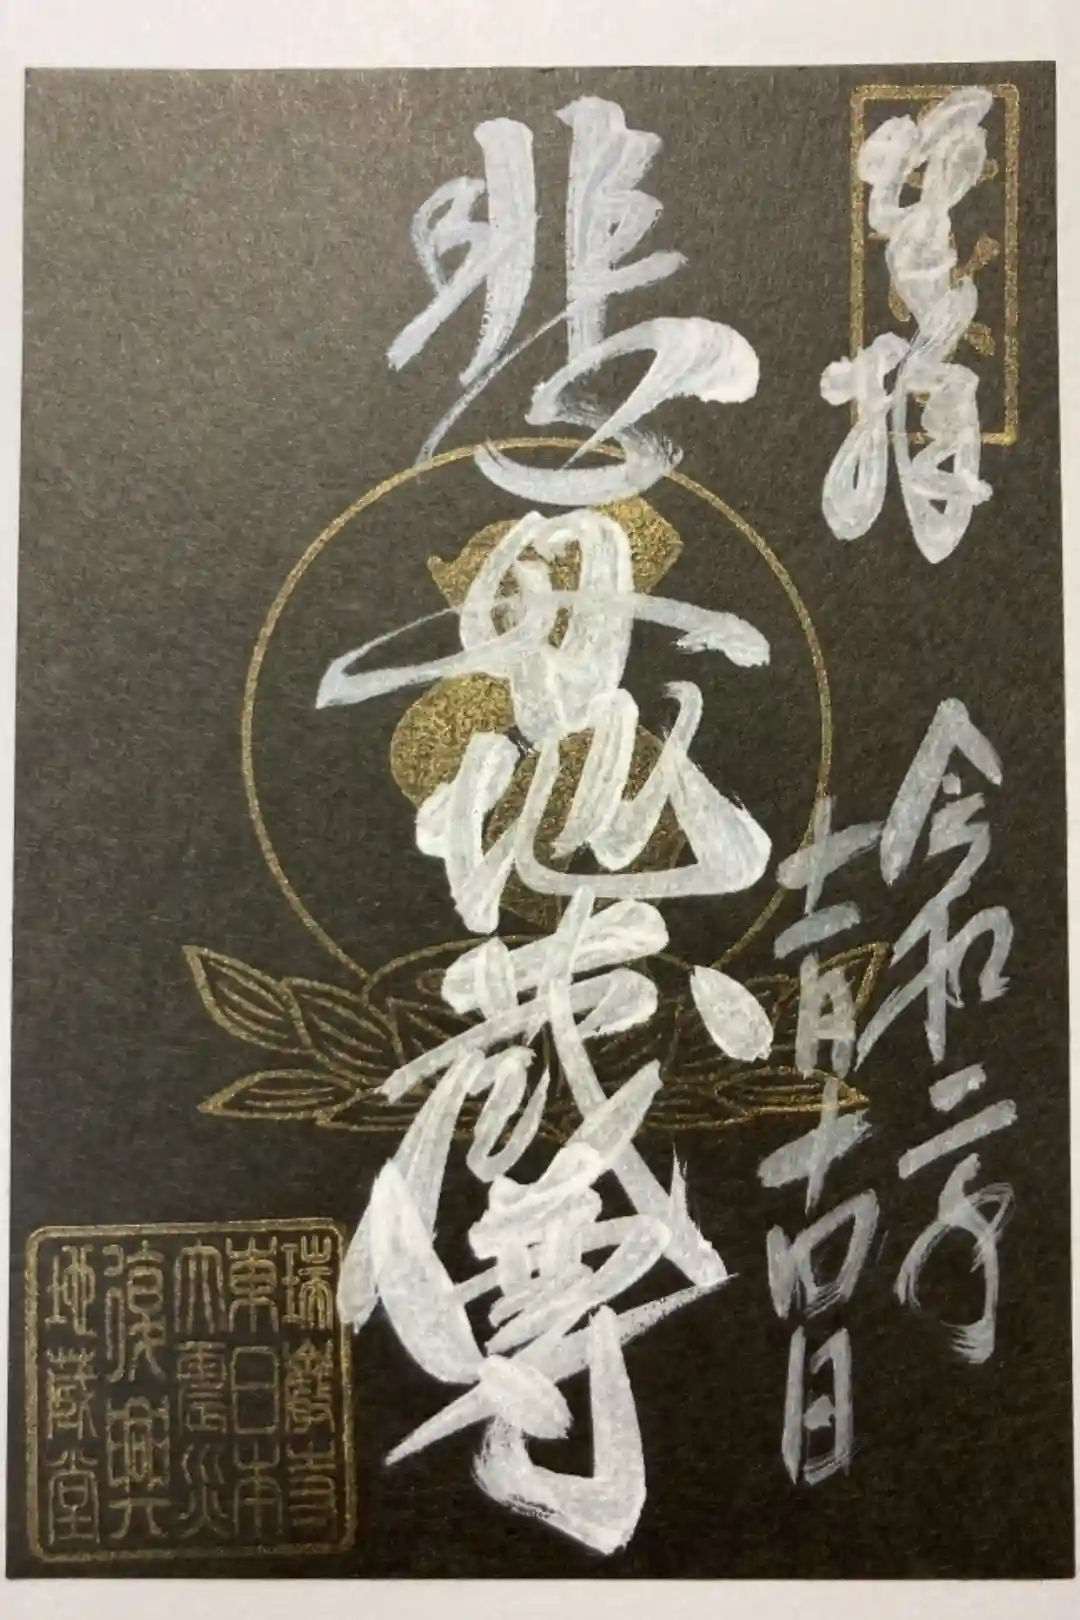 奉拝
令和二年
十一月十四日
悲母地蔵尊
瑞 寺
東日本
大震災
復興
地蔵堂